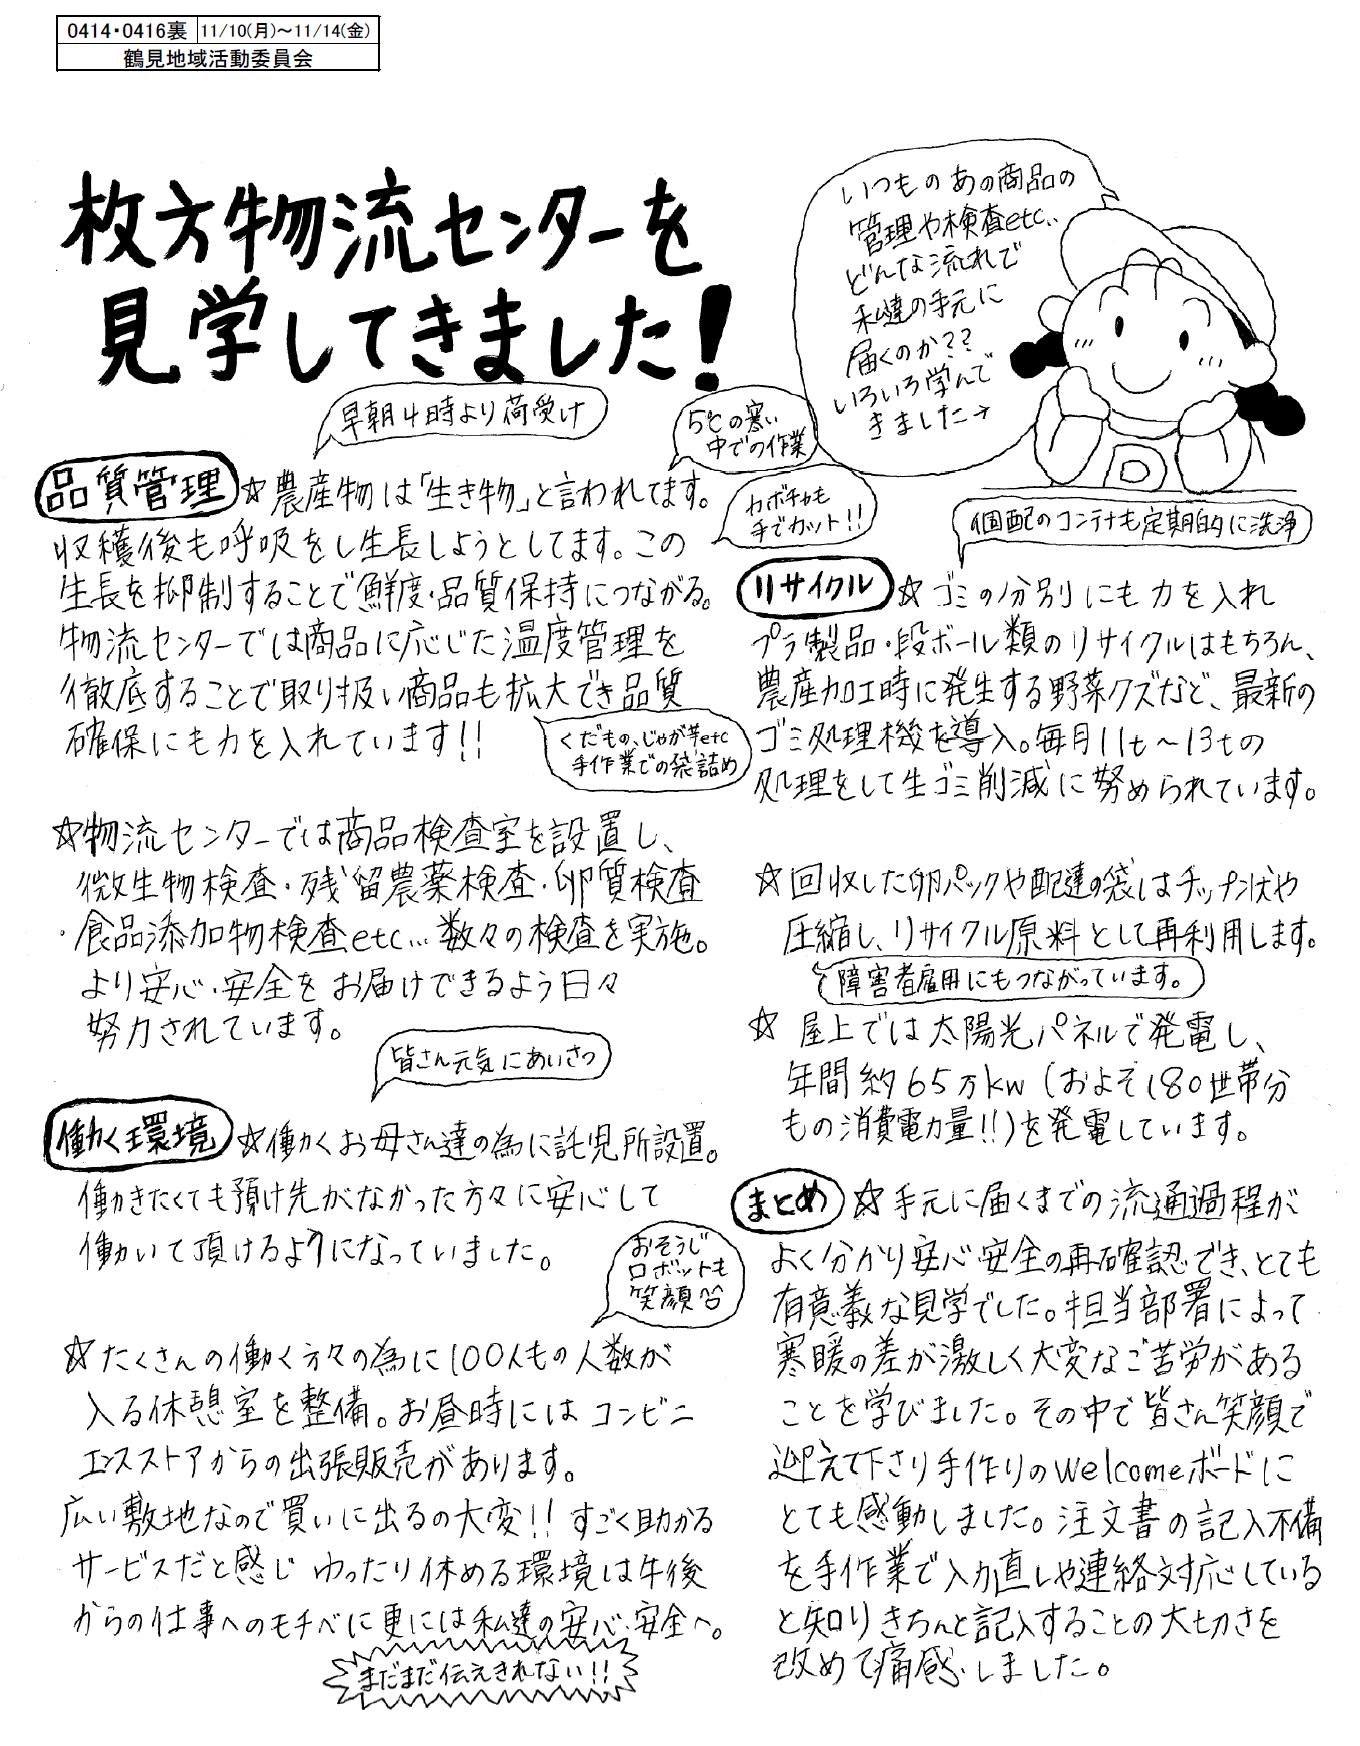 0414・0416裏 11/10(月)～11/14(金)
鶴見地域活動委員会
枚方物流センターを
見学してきました!
いつものあの商品の
管理や検査etc、
どんな流れで
私達の手元に
届くのか??
いろいろ学んで
きました→
早朝4時より荷受け
5℃の寒い
中での作業
カボチャも
手でカット!!
品質管理 ☆農産物は「生き物」と言われてます。
収穫後も呼吸をし生長しようとしてます。この
生長を抑制することで鮮度・品質保持につながる。
物流センターでは商品に応じた温度管理を
徹底することで取り扱い商品も拡大でき品質
確保にも力を入れています!!
くだもの、じゃが芋etc
手作業での袋詰め
☆物流センターでは商品検査室を設置し、
微生物検査・残留農薬検査・卵質検査
・食品添加物検査etc…数々の検査を実施。
より安心・安全をお届けできるよう日々
努力されています。
皆さん元気にあいさつ
働く環境 ☆働くお母さん達の為に託児所設置。
働きたくても預け先がなかった方々に安心して
働いて頂けるようになっていました。
おそうじ
ロボットも
笑顔
☆たくさんの働く方々の為に100人もの人数が
入る休憩室を整備。お昼時にはコンビニ
エンスストアからの出張販売があります。
広い敷地なので買いに出るの大変!! すごく助かる
サービスだと感じ ゆったり休める環境は午後
からの仕事へのモチベに更には私達の安心・安全へ。
まだまだ伝えきれない!!
個配のコンテナも定期的に洗浄
リサイクル ☆ゴミの分別にも力を入れ
プラ製品・段ボール類のリサイクルはもちろん、
農産加工時に発生する野菜クズなど、最新の
ゴミ処理機を導入。毎月11t～13tの
処理をして生ゴミ削減に努められています。
☆回収した卵パックや配達の袋はチップ状や
圧縮し、リサイクル原料として再利用します。
障害者雇用にもつながっています。
☆屋上では太陽光パネルで発電し、
年間約65万kw(およそ180世帯分
もの消費電力量!!)を発電しています。
まとめ ☆手元に届くまでの流通過程が
よく分かり安心・安全の再確認でき、とても
有意義な見学でした。担当部署によって
寒暖の差が激しく大変なご苦労がある
ことを学びました。その中で皆さん笑顔で
迎えて下さり手作りのWelcomeボードに
とても感動しました。注文書の記入不備
を手作業で入力直しや連絡対応している
と知りきちんと記入することの大切さを
改めて痛感しました。